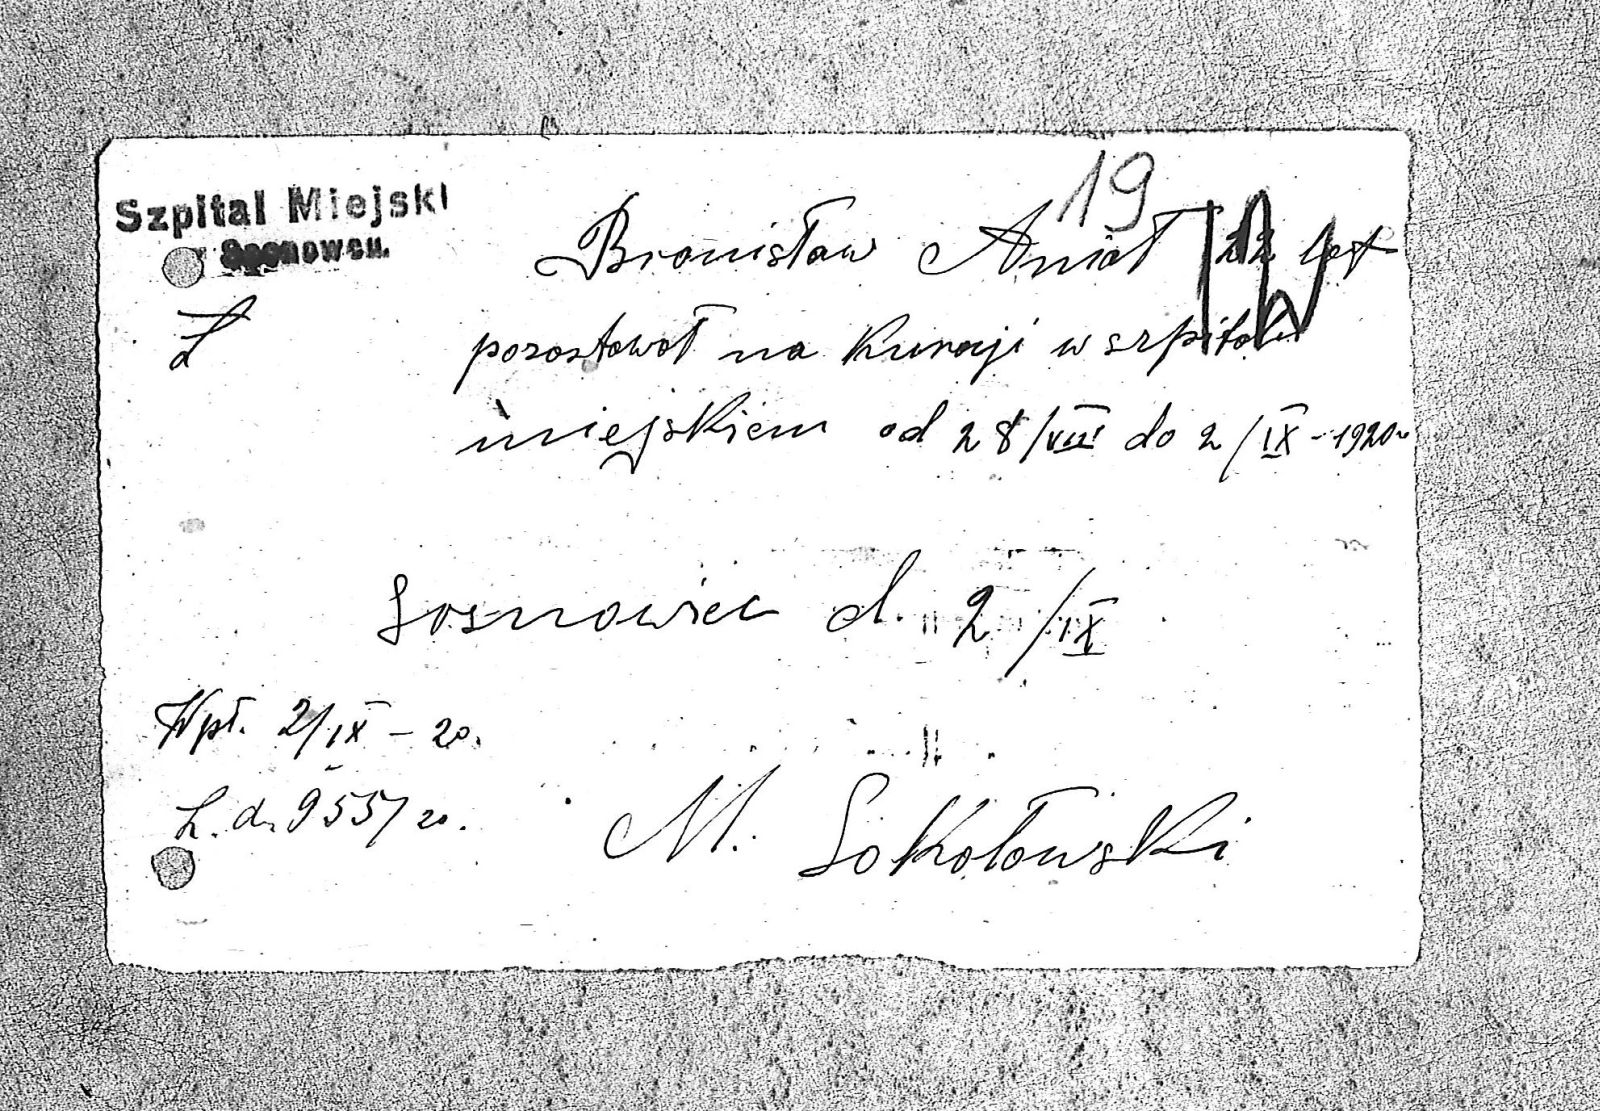 Szpital Miejski
w Sosnowcu.
19
Bronisław Anioł 22 let
pozostawał na kuracji w szpitalu
miejskiem od 28/VIII do 2/IX - 1920 r
Sosnowiec d. 2/IX
Wpł. 2/IX - 20.
L. d. 955/20.
M. Sokołowski